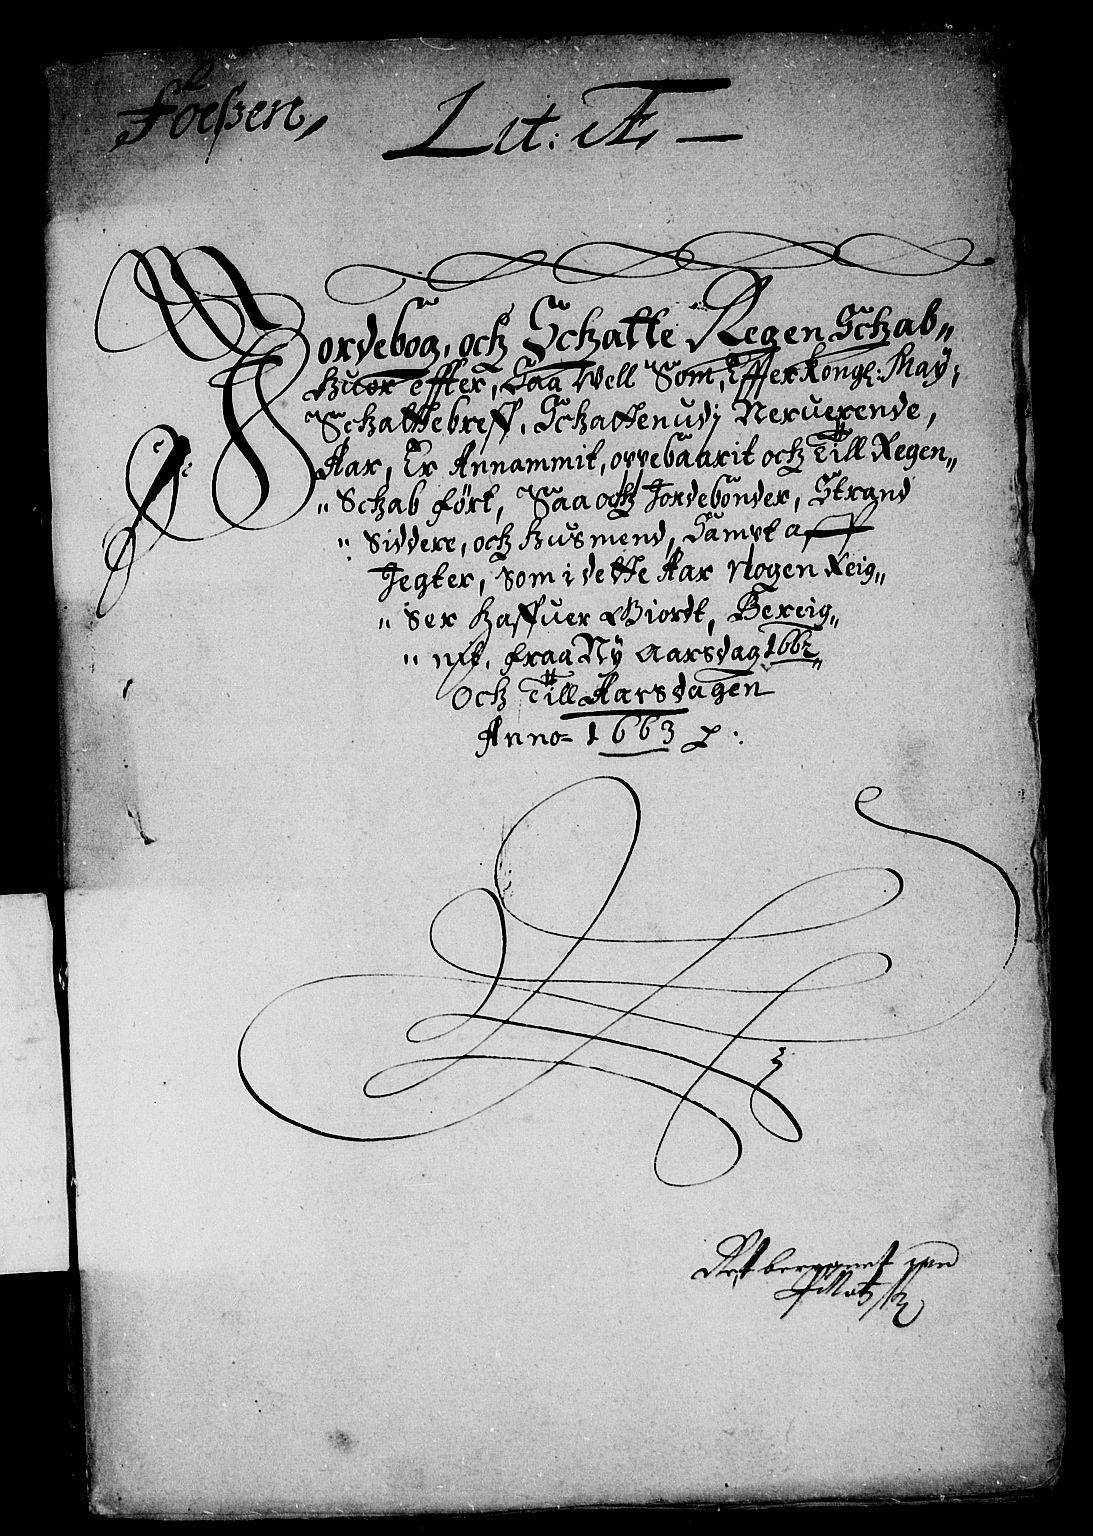 Foeszen,
Lit: Æ —
Jordebog, och Schatte Regen Schab„
Huor effter, Saa Well Som, Effter kongl: May;
Schattebreff, Schatten udj Neruerende,
Aar, Er Annammit, oppebaarit och Till Regen„
„ Schab ført, Saa och Jordebønder, Strand
„ Siddere, och Husmend, Sampt aff
Jegter, Som i dette Aar Nogen Reig„
„ Ser haffuer Giordt, Bereig„
„ nit, fraa Ny Aarsdag 1662„
Och Till Aarsdagen
Anno= 1663